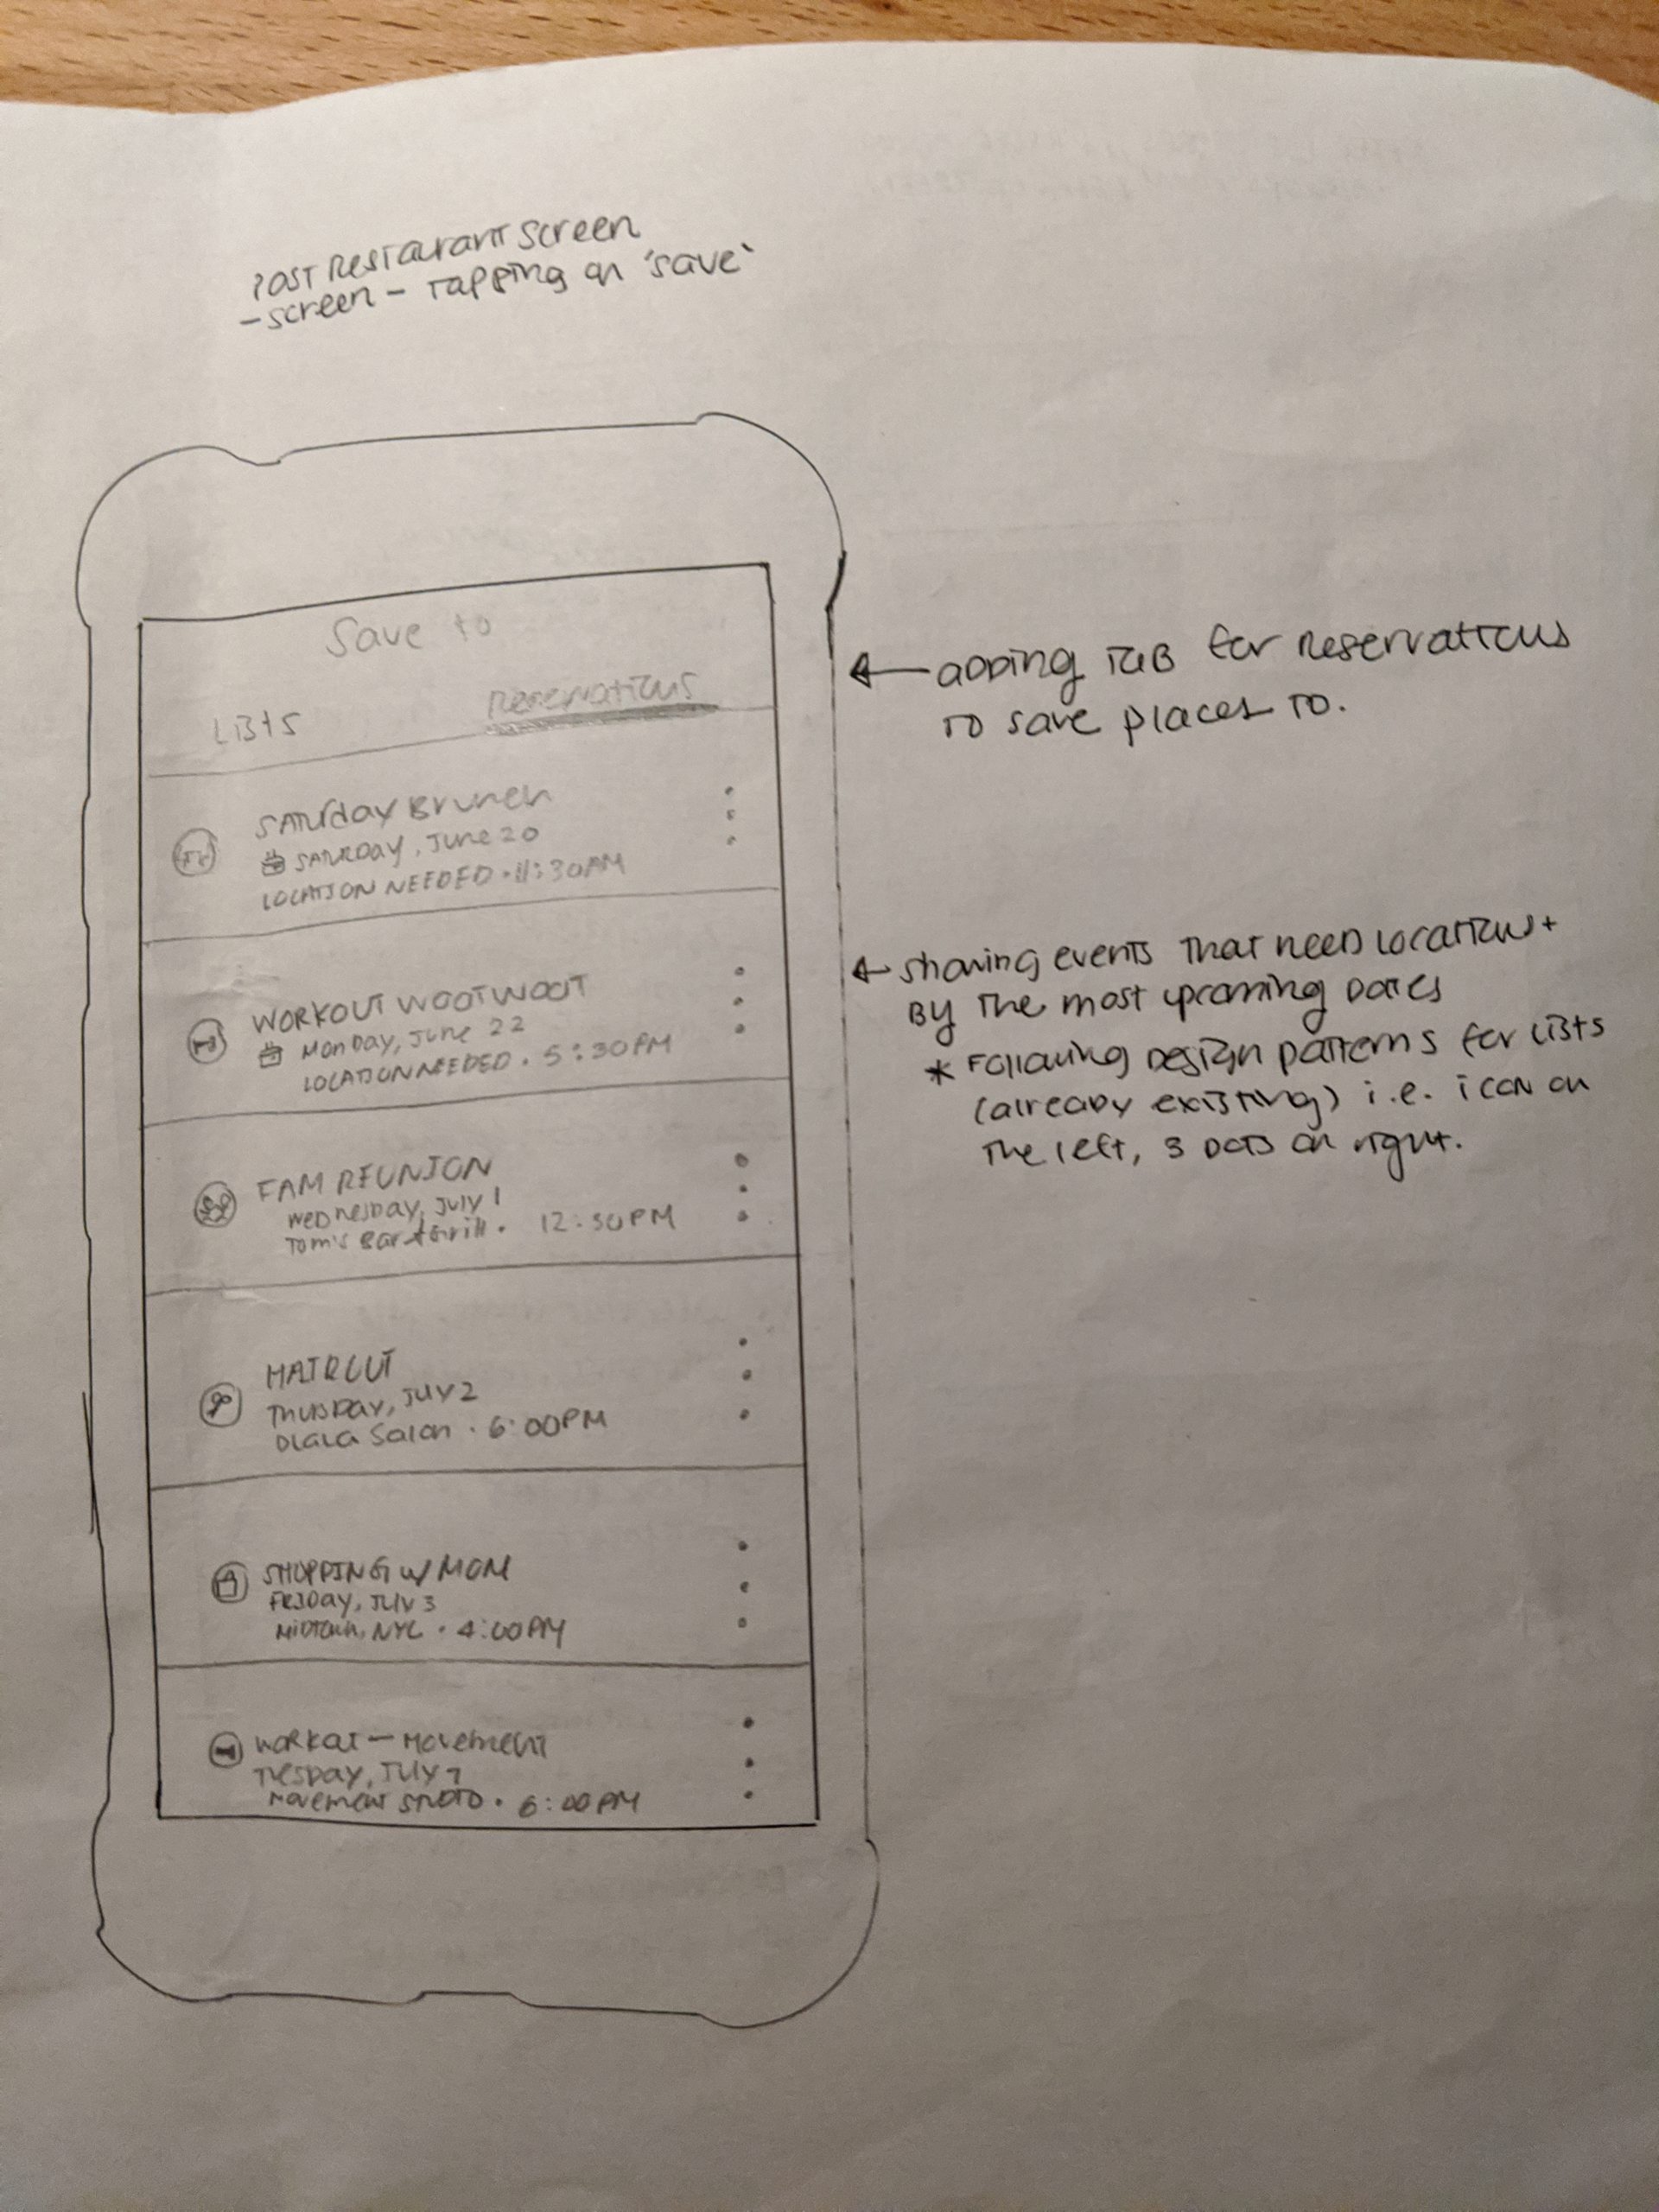 POST RESTAURANT SCREEN
- SCREEN - TAPPING ON 'SAVE'
Save to
LISTS
RESERVATIONS
SATURDAY BRUNCH
SATURDAY, JUNE 20
LOCATION NEEDED • 11:30AM
WORKOUT WOOTWOOT
MONDAY, JUNE 22
LOCATION NEEDED • 5:30PM
FAM REUNION
WEDNESDAY, JULY 1
TOM'S Bar + Grill • 12:30PM
HAIRCUT
THUSDAY, JULY 2
Salon • 6:00PM
SHOPPING w/ MOM
FRIDAY, JULY 3
MIDTOWN, NYC • 4:00PM
WORKOUT - MOVEMENT
TUESDAY, JULY 7
MOVEMENT • 6:00PM
← ADDING TAB FOR RESERVATIONS
TO SAVE PLACES TO.
← SHOWING EVENTS THAT NEED LOCATION +
BY THE MOST UPCOMING DATES
* FOLLOWING DESIGN PATTERNS FOR LISTS
(ALREADY EXISTING) i.e. ICON ON
THE LEFT, 3 DOTS ON RIGHT.